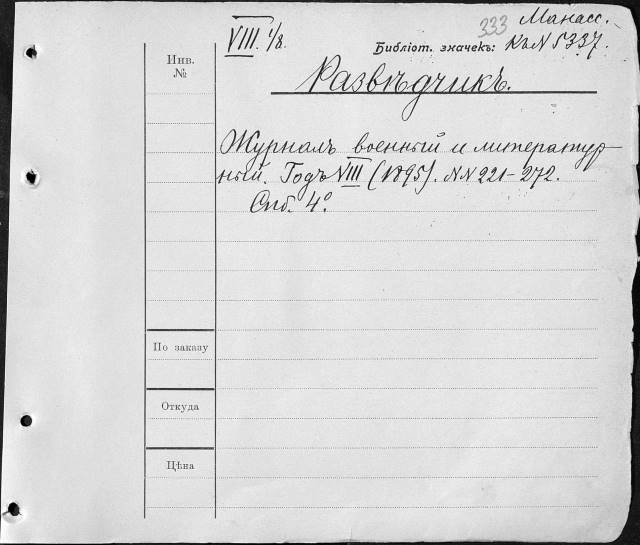 333 Манасс.
VIII. 1/8. Библіот. значекъ: КъN 5337.
Инв.
№
Развѣдчикъ.
Журналъ военный и литератур-
ный. Годъ VIII (1895). NN 221-272.
Спб. 4°.
По заказу
Откуда
Цѣна